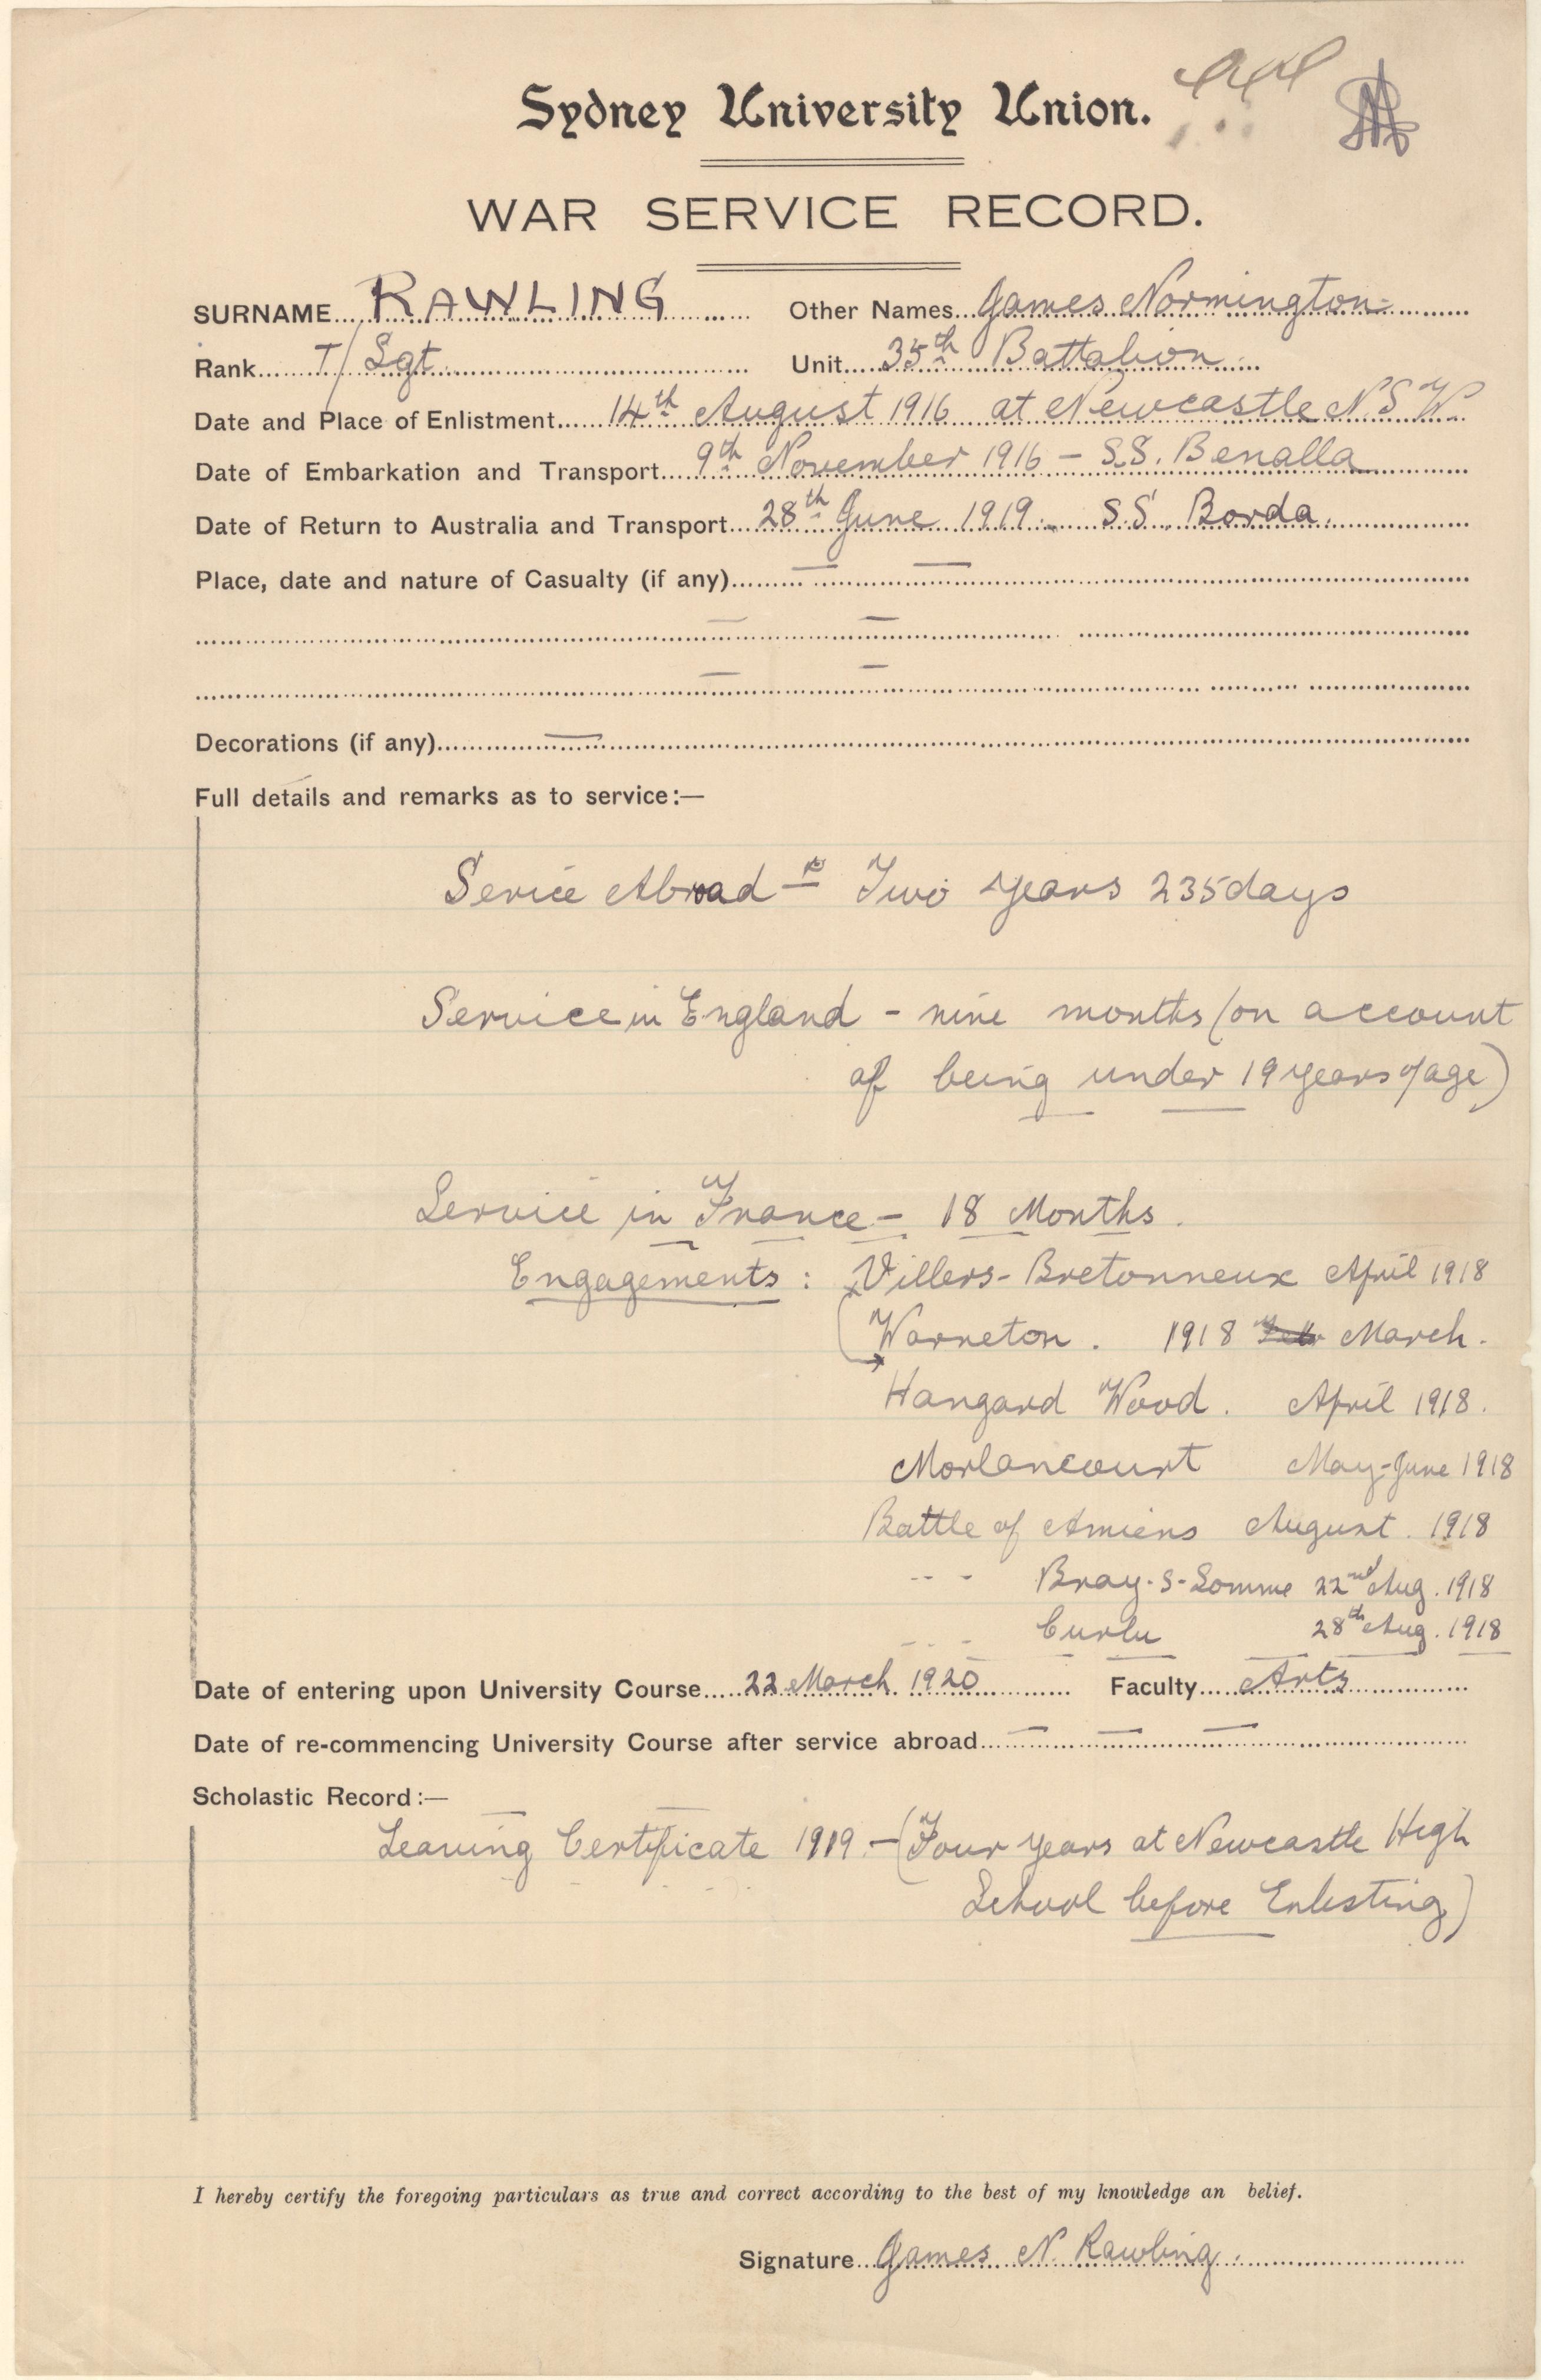 Sydney University Union.
WAR SERVICE RECORD.
SURNAME RAWLING Other Names James Normington
Rank T/Sgt Unit 35th Battalion
Date and Place of Enlistment 14th August 1916 at Newcastle N.S.W.
Date of Embarkation and Transport 9th November 1916 – S.S. Benalla
Date of Return to Australia and Transport 28th June 1919. S.S. Borda.
Place, date and nature of Casualty (if any) —
Decorations (if any) —
Full details and remarks as to service:—
Serice Abroad – Two years 235 days
Service in England - nine months (on account
of being under 19 years of age)
Service in France – 18 Months.
Engagements : Villers-Bretonneux April 1918
Warneton. 1918 March.
Hangard Wood. April 1918.
Morlancourt May-June 1918
Battle of Amiens August. 1918
Bray-S-Somme 22nd Aug. 1918
Curlu 28th Aug. 1918
Date of entering upon University Course 22 March 1920 Faculty Arts
Date of re-commencing University Course after service abroad —
Scholastic Record:—
Leaving Certificate 1919 – (Four years at Newcastle High
School before Enlisting)
I hereby certify the foregoing particulars as true and correct according to the best of my knowledge an belief.
Signature James N. Rawling.